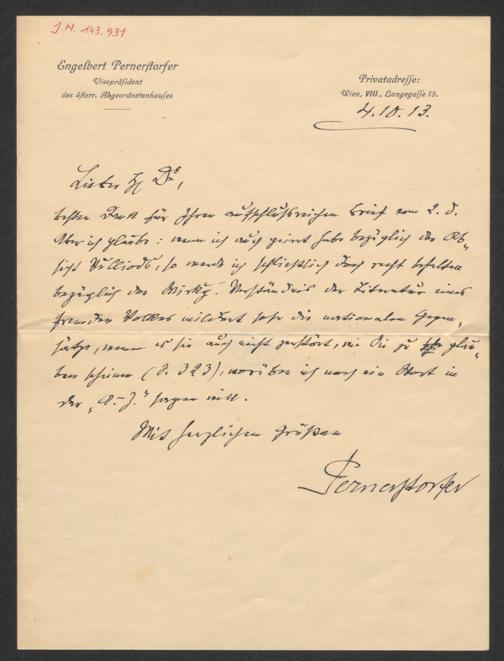 J.N. 143.931
Engelbert Pernerstorfer
Vizepräsident
des österr. Abgeordnetenhauses
Privatadresse:
Wien, VIII., Langegasse 15.
4.10.13.
Lieber H Dr,
besten Dank für Ihren aufschlußreichen Brief vom 2. d.
Aber ich glaube: wenn ich auch geirrt habe bezüglich der Ab„
sicht Vulliods, so werde ich schließlich doch recht behalten
bezüglich der Wirkg. Verständnis der Literatur eines
fremden Volkes mildert sehr die nationalen Gegen„
sätze, wenn es sie auch nicht zerstört, wie Sie zu glau„
ben scheinen (S. 323), worüber ich noch ein Wort in
der „A.-Z." sagen will.
Mit herzlichen Grüßen
Pernerstorfer